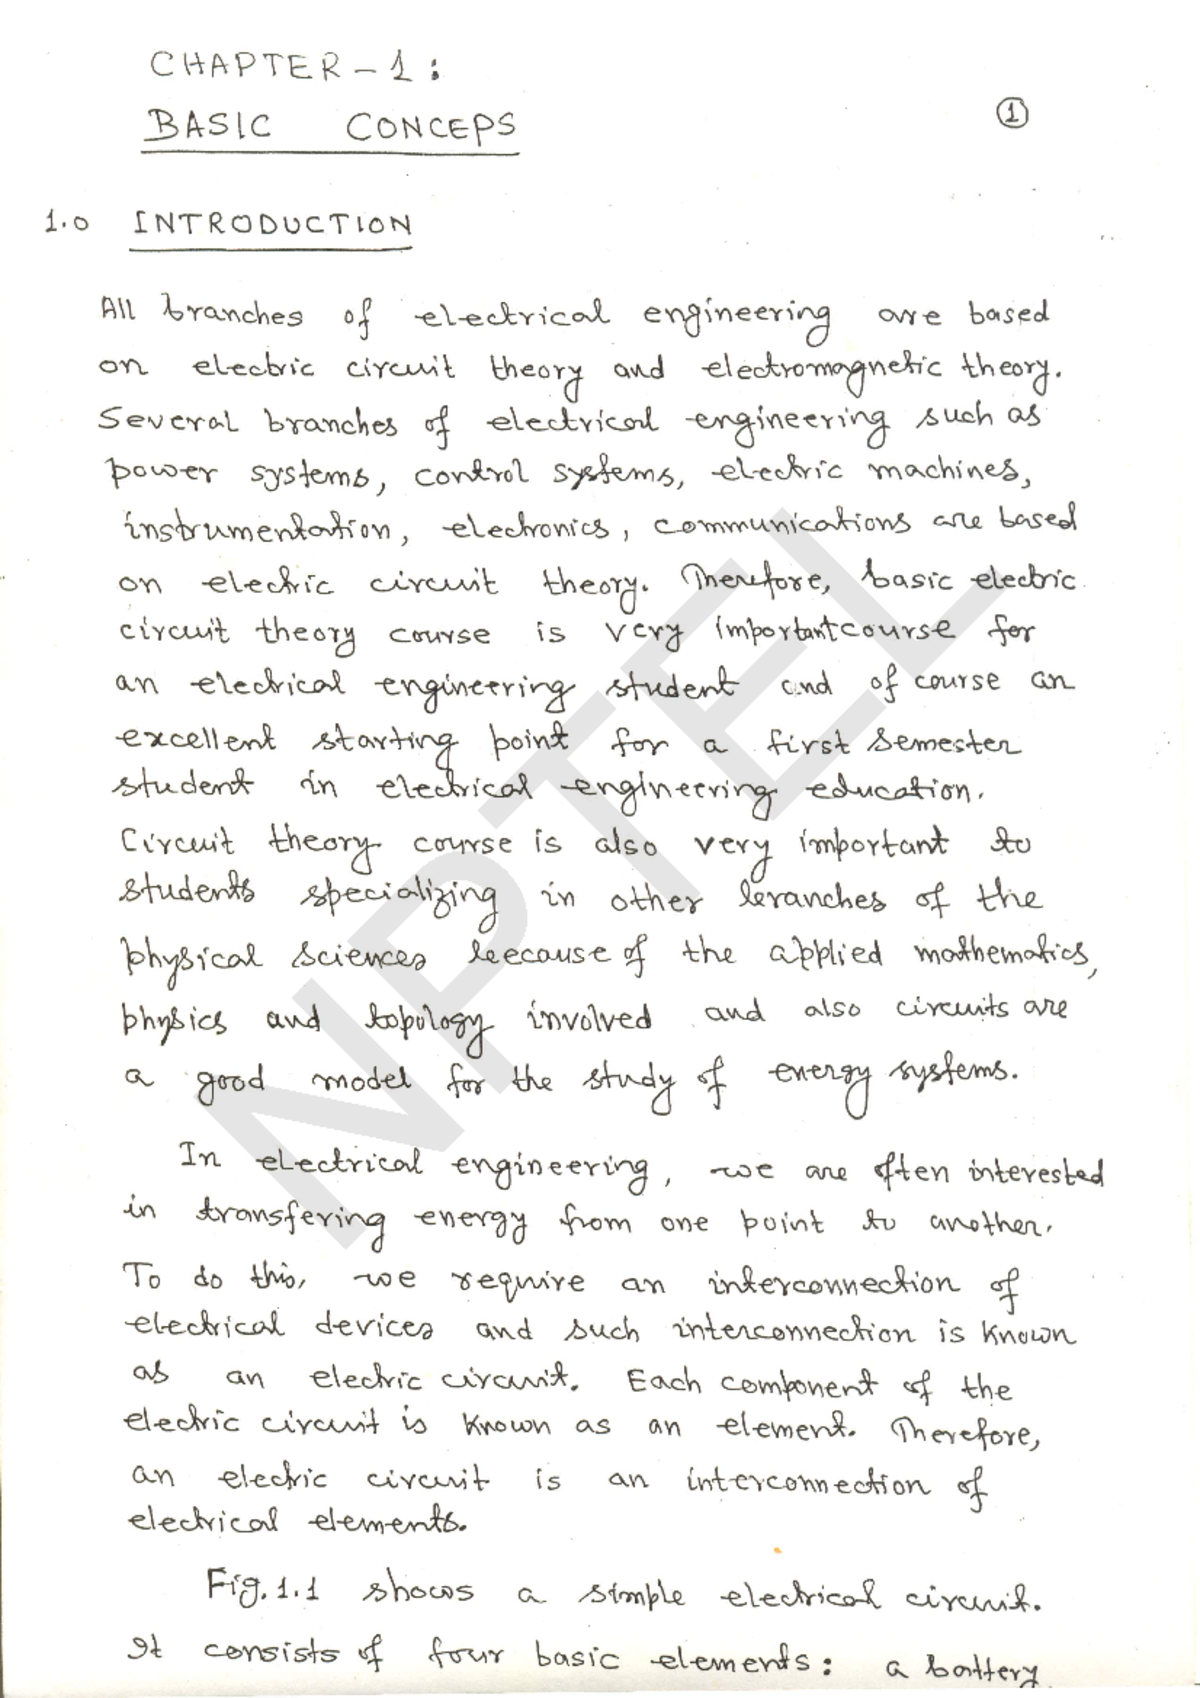 CHAPTER-1:
BASIC CONCEPS
1
1.0 INTRODUCTION
All branches of electrical engineering are based
on electric circuit theory and electromagnetic theory.
Several branches of electrical engineering such as
power systems, control systems, electric machines,
instrumentation, electronics, communications are based
on electric circuit theory. Therefore, basic electric
circuit theory course is very important course for
an electrical engineering student and of course an
excellent starting point for a first semester
student in electrical engineering education.
Circuit theory course is also very important to
students specializing in other branches of the
physical sciences because of the applied mathematics,
physics and topology involved and also circuits are
a good model for the study of energy systems.
In electrical engineering, we are often interested
in transfering energy from one point to another.
To do this, we require an interconnection of
electrical devices and such interconnection is known
as an electric circuit. Each component of the
electric circuit is known as an element. Therefore,
an electric circuit is an interconnection of
electrical elements.
Fig. 1.1 shows a simple electrical circuit.
It consists of four basic elements: a battery
NPTEL